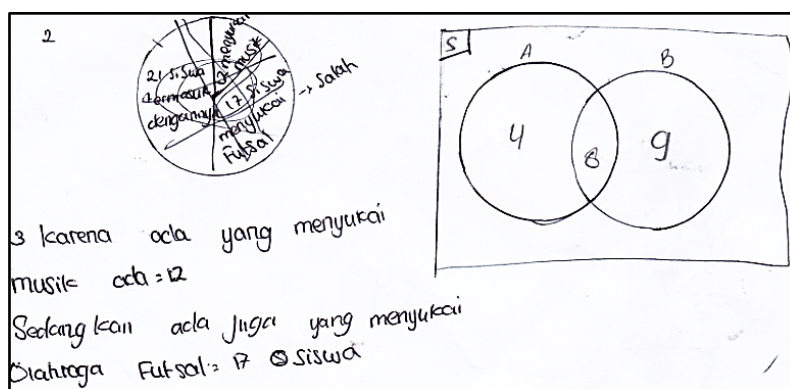 2
21 siswa
termasuk
dengannya
12 menyukai
musik
17 siswa
menyukai
Futsal
→ Salah
S
A
B
4
8
9
3 karena ada yang menyukai
musik ada = 12
Sedangkan ada juga yang menyukai
Olahraga Futsal = 17 siswa